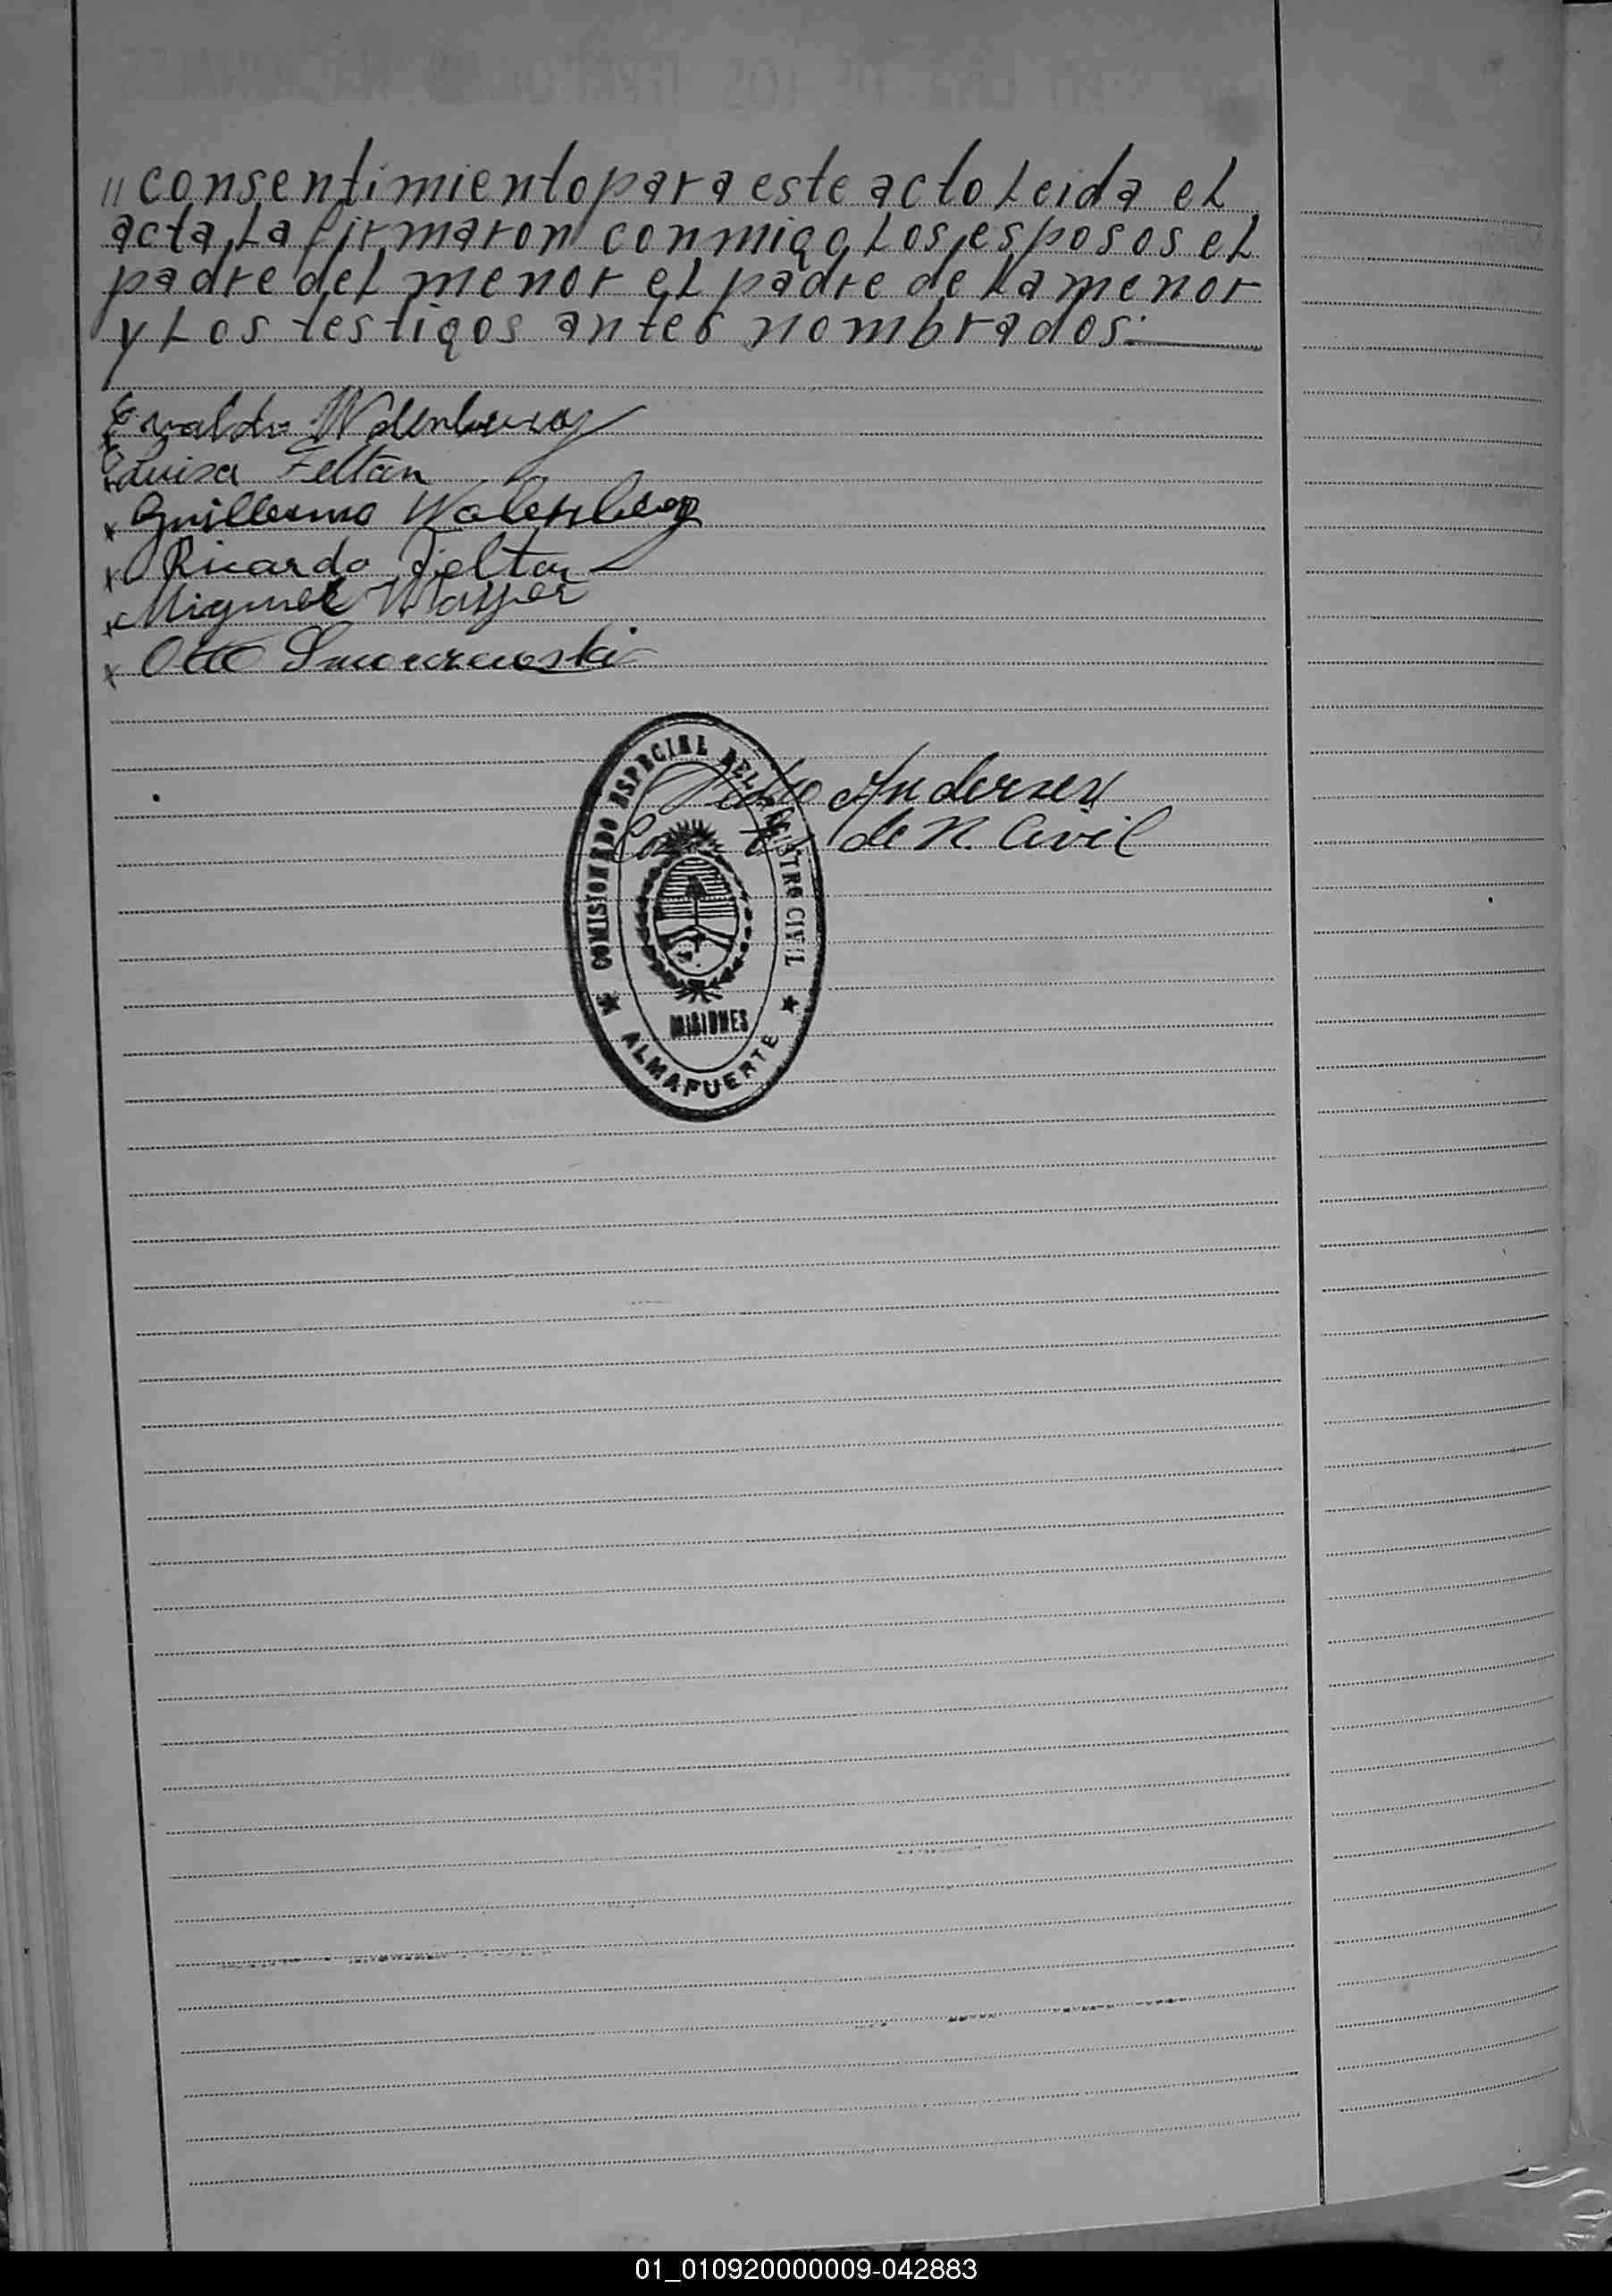 " consentimiento para este acto Leida el
acta, La firmaron conmigo, Los, esposos el
padre del menor el padre de La menor
y Los testigos antes nombrados:
Ewaldo Walenberg
Luisa Feltan
Guillermo Walenberg
Ricardo Feltan
Miguel
Otto
COMISIONADO ESPECIAL DEL REGISTRO CIVIL
Andersen
de R. Civil
MISIONES
ALMAFUERTE
01_010920000009-042883